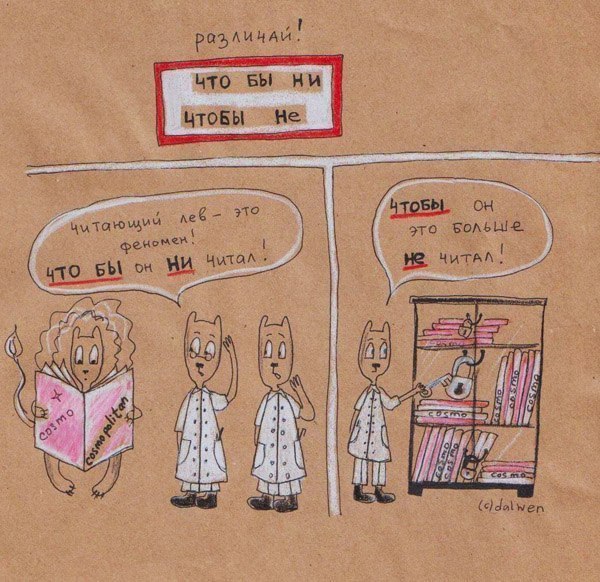 различай!
что бы ни
чтобы не
читающий лев – это
феномен!
что бы он ни читал!
cosmo
cosmopolitan
чтобы он
это больше
не читал!
cosmo
cosmo
cosmo
cosmo
cosmo
cosmo
(c)dalwen